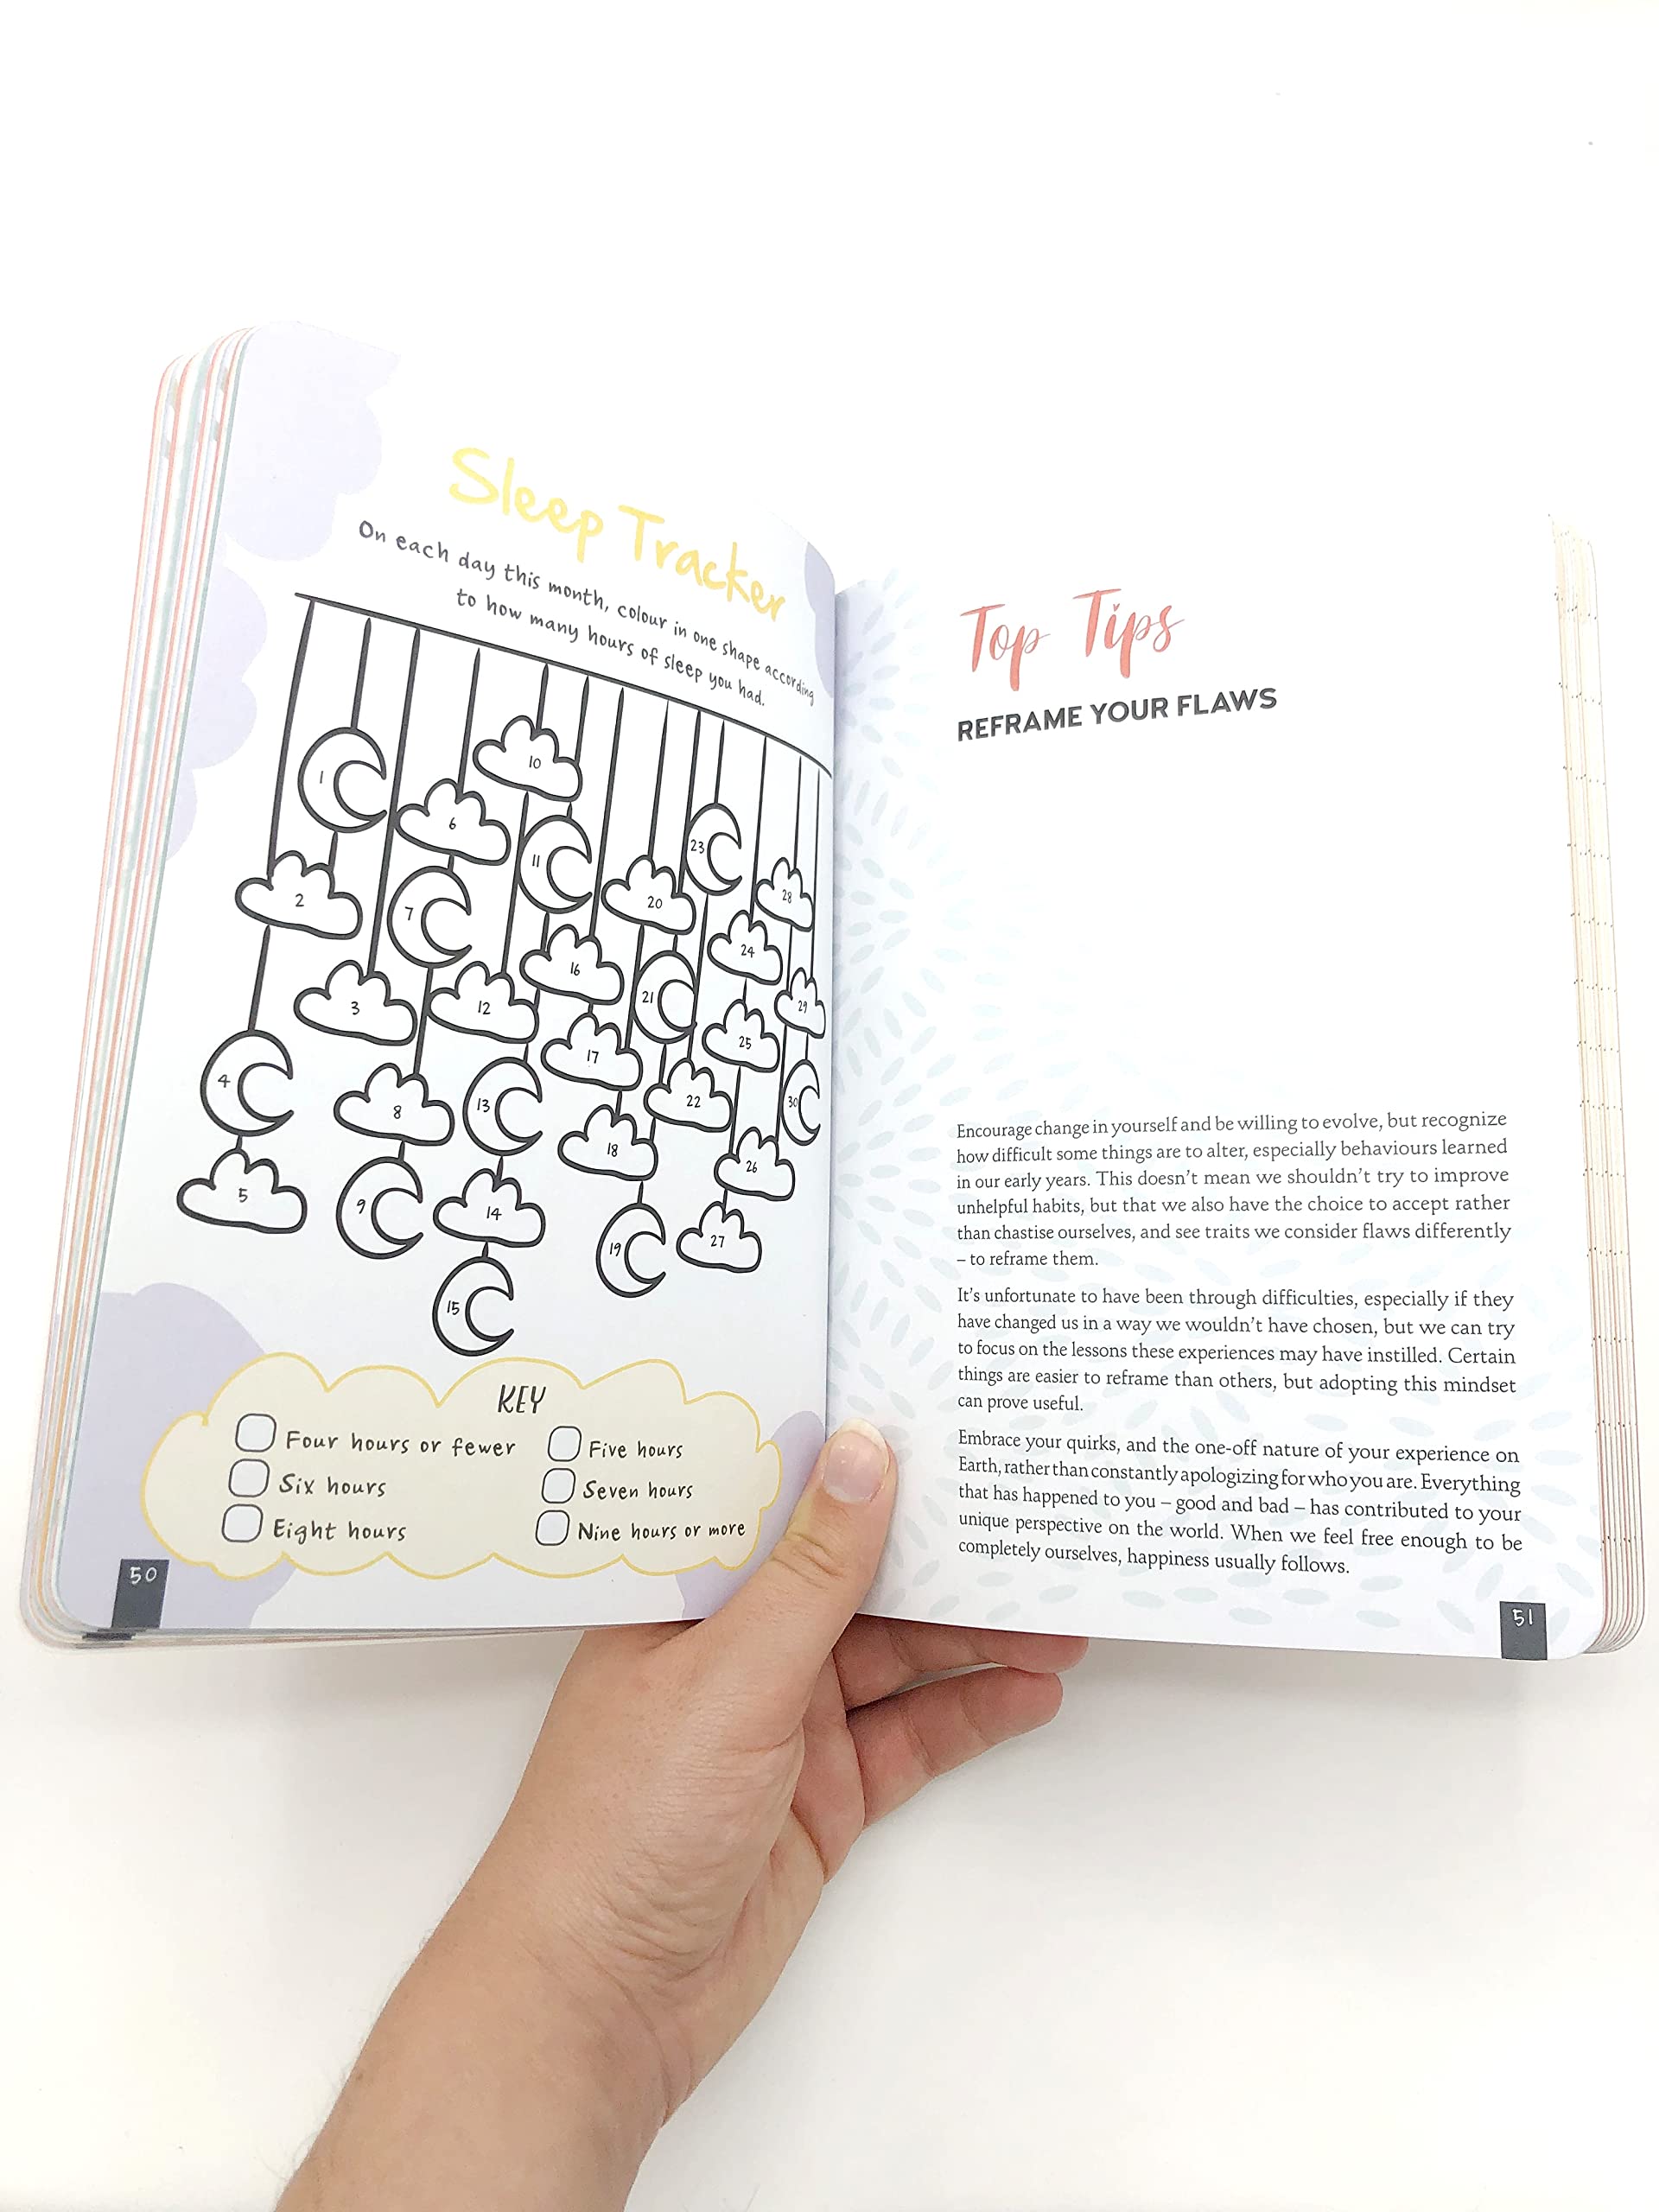 Sleep Tracker
On each day this month, colour in one shape according
to how many hours of sleep you had.
1
2
3
4
5
6
7
8
9
10
11
12
13
14
15
16
17
18
19
20
21
22
23
24
25
26
27
28
29
30
KEY
Four hours or fewer
Five hours
Six hours
Seven hours
Eight hours
Nine hours or more
50
Top Tips
REFRAME YOUR FLAWS
Encourage change in yourself and be willing to evolve, but recognize
how difficult some things are to alter, especially behaviours learned
in our early years. This doesn't mean we shouldn't try to improve
unhelpful habits, but that we also have the choice to accept rather
than chastise ourselves, and see traits we consider flaws differently
– to reframe them.
It's unfortunate to have been through difficulties, especially if they
have changed us in a way we wouldn't have chosen, but we can try
to focus on the lessons these experiences may have instilled. Certain
things are easier to reframe than others, but adopting this mindset
can prove useful.
Embrace your quirks, and the one-off nature of your experience on
Earth, rather than constantly apologizing for who you are. Everything
that has happened to you – good and bad – has contributed to your
unique perspective on the world. When we feel free enough to be
completely ourselves, happiness usually follows.
51